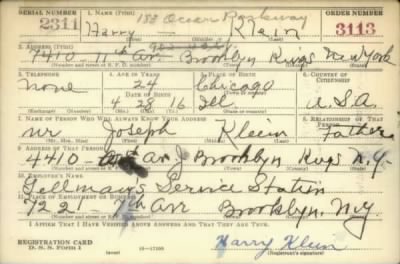 SERIAL NUMBER 1. NAME (Print) 133 Ocean Parkway ORDER NUMBER
2311 Harry Klein 3113
(First) (Middle) (Last)
2. ADDRESS (Print)
7410 - 11th Av. Brooklyn Kings New York
(Number and street or R. F. D. number) (Town) (County) (State)
3. TELEPHONE 4. AGE IN YEARS 5. PLACE OF BIRTH 6. COUNTRY OF CITIZENSHIP
None 24 Chicago
DATE OF BIRTH (Town or county)
4 28 16 Ill U.S.A.
(Exchange) (Number) (Mo.) (Day) (Yr.) (State or country)
7. NAME OF PERSON WHO WILL ALWAYS KNOW YOUR ADDRESS 8. RELATIONSHIP OF THAT PERSON
Mr Joseph Klein Father
(Mr., Mrs., Miss) (First) (Middle) (Last)
9. ADDRESS OF THAT PERSON
4410 - Av J Brooklyn Kings N.Y.
(Number and street or R. F. D. number) (Town) (County) (State)
10. EMPLOYER'S NAME
Service Station
11. PLACE OF EMPLOYMENT OR BUSINESS
7221 - 7th Av Brooklyn. N.Y
(Number and street or R. F. D. number) (Town) (County) (State)
I AFFIRM THAT I HAVE VERIFIED ABOVE ANSWERS AND THAT THEY ARE TRUE.
REGISTRATION CARD
D. S. S. Form 1 (over) 16-17105 Harry Klein
(Registrant's signature)